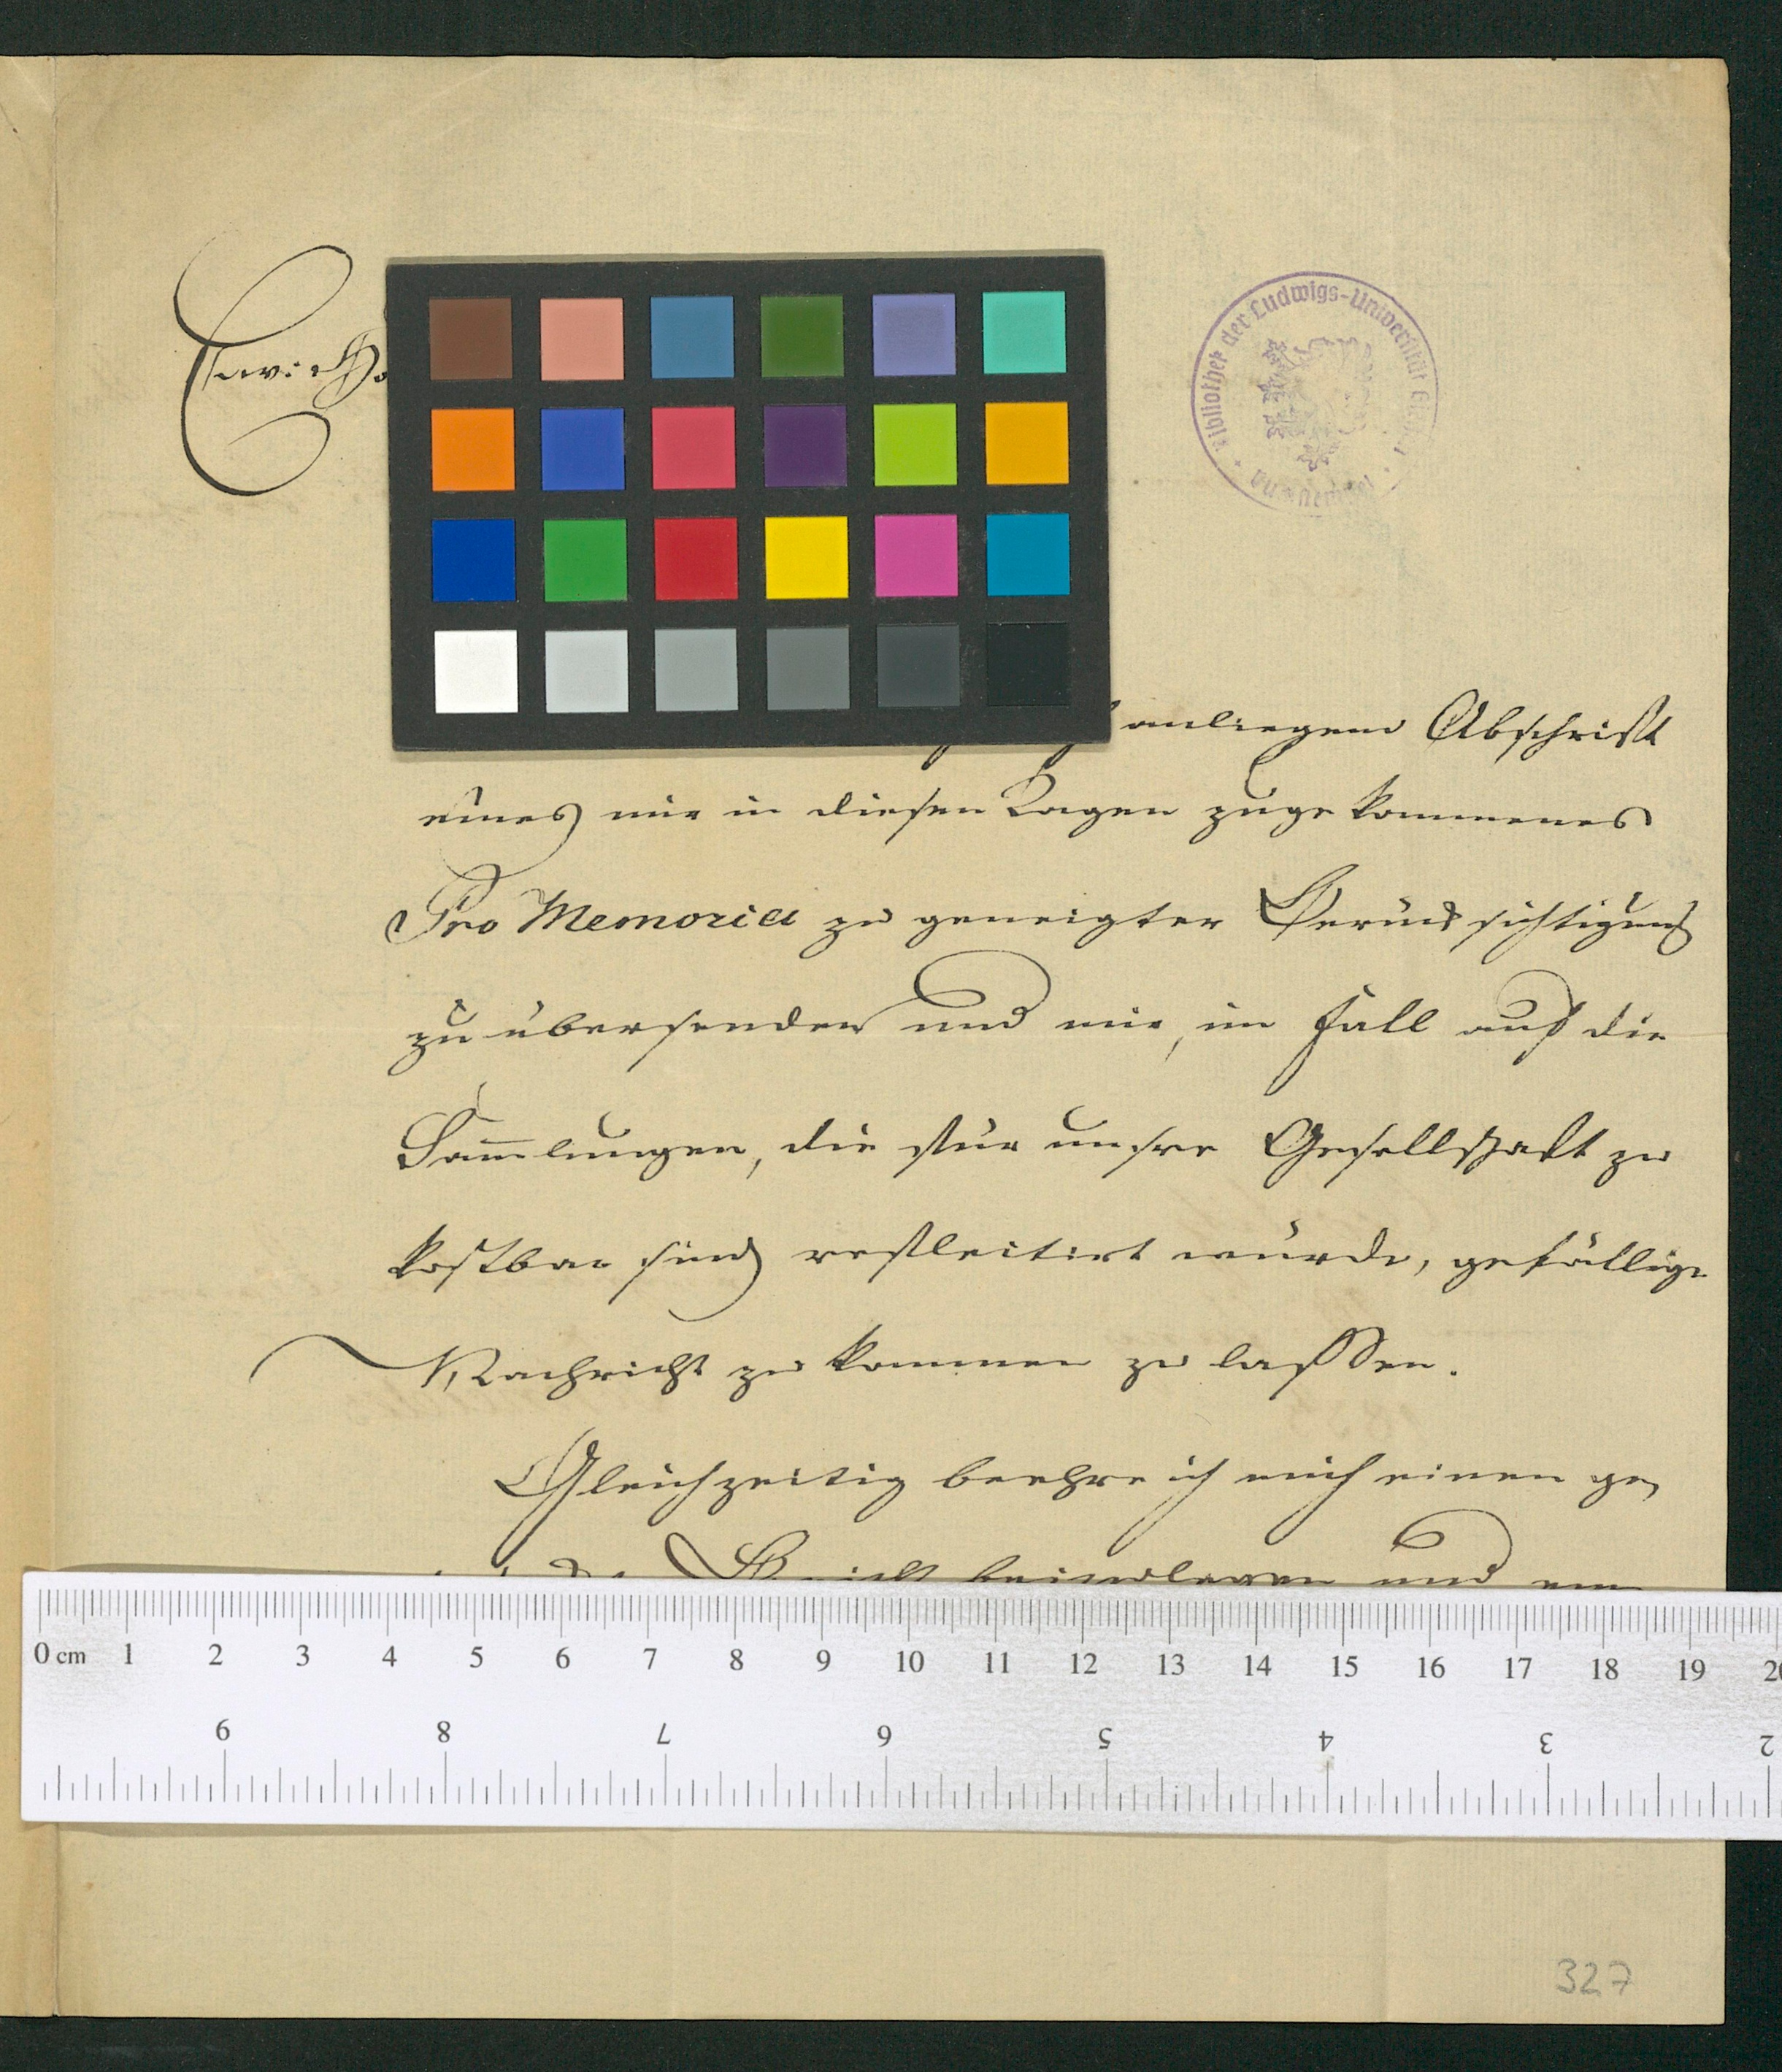 Bibliothek der Ludwigs-Universität
anliegend Abschrift
eines mir in diesen Tagen zugekommenes
Pro Memoria zu geneigter Berücksichtigung
zu übersenden und mir, im Fall auf die
Sam̅lungen, die für unsre Gesellschaft zu
kostbar sind reflectirt würde, gefällige
Nachricht zu kommen zu lassen.
Gleichzeitig beehre ich mich einen ge¬
beizulegen und
0 cm 1 2 3 4 5 6 7 8 9 10 11 12 13 14 15 16 17 18 19 20
9 8 7 6 5 4 3 2
327